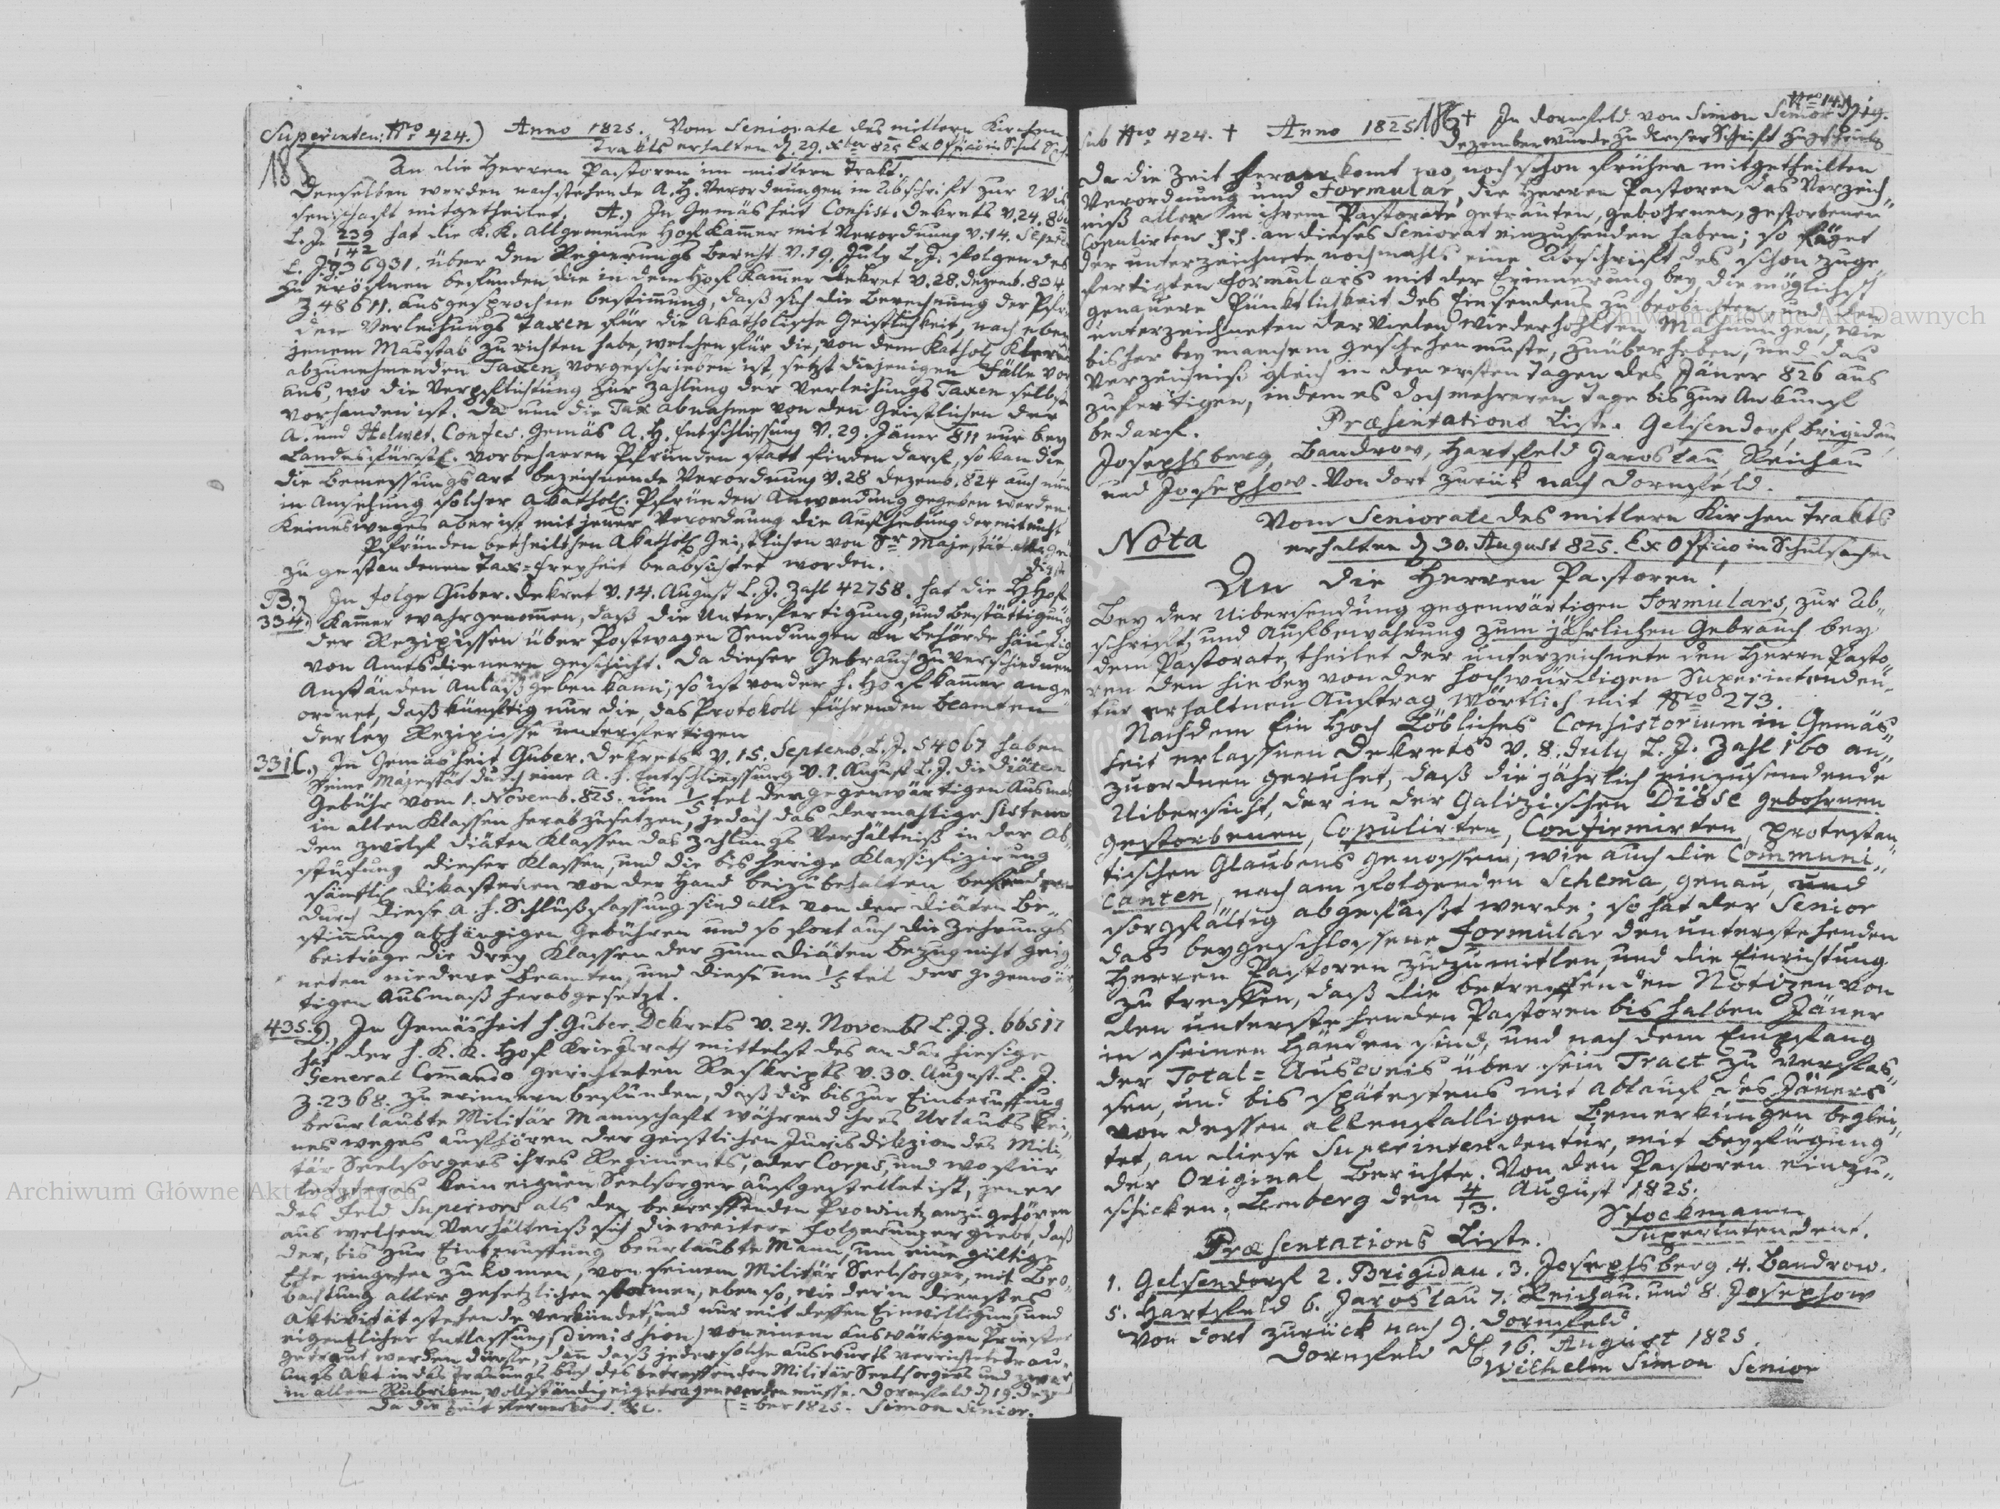 Superinten: Nro 424.) Anno 1825. Vom Seniorate des mittern Kirchen
Trakts erhalten d. 29. Xber 825 Ex Officio in Schul
185
An die Herren Pastoren im mittlern Trakt.
Denselben werden nachstehende A. H. Verordnungen in Abschrift zur Wis
senschaft mitgetheilet, A.) In Gemäsheit Consist. Dekrets v. 24.
l. J. 239/142 hat die K. K. allgemeine Hof Kammer mit Verordnung v. 14. Sept
l. J. Z. 36931. über den Regierungs Bericht v. 19. July l. J. folgendes
zu eröffnen befunden die in dem Hof Kammer Dekret v. 28. Dezemb. 824
Z. 48611. ausgesprochne bestimmung, daß sich die Berechnung der Pfrün
den Verleihungs Taxen für die Akatholische Geistlichkeit, nach eben
jenem Masstab zu richten habe, welchen für die, von dem Kathol. Klerus
abzunehmenden Taxen, vorgeschrieben ist, setzt diejenigen Fälle vor
aus, wo die Verpflichtung zur Zahlung der Verleihungs Taxen selbst
vorhanden ist. Da nun die Tax abnahme von den Geistlichen der
A. und Helvet. Confes. gemäs A. H. Entschliessung v. 29. Jäner 811 nur bey
Landesfürstl. vorbeharren Pfründen statt finden darf, so kan die
die Bemessungsart bezeichnende Verordnung v. 28 Dezemb. 824 auch nur
in Ansehung solcher Akathol. Pfründen Anwendung gegeben werden
Keinesweges aber ist mit jener Verordnung die Aufhebung der mit
Pfründen betheilten Akathol. Geistlichen von Sr Majestät
zugestandenen Tax=freyheit beabsichtet worden.
B.) In folge Guber. Dekret v. 14. August l. J. Zahl 42758. hat die H. Hof
334) Kammer wahrgenommen, daß die Unterfertigung, und Bestättigung
der Rezipissen über Postwagen Sendungen an Behörde häufig
von Amtsdienern geschieht. Da dieser Gebrauch zu verschiednen
Anständen Anlaß geben kann; so ist von der h. Hofkammer ange
ordnet, daß künftig nur die, das Protokoll führenden Beamten
derley Rezipisse unterfertigen
331 C.) In Gemäsheit Guber. Dekrets v. 15. Septemb. l. J. 54067 haben
Seine Majestät durch eine A. h. Entschliessung v. 1. August l. J. die Diäten
Gebühr vom 1. Novemb. 825. um 1/5tel der gegenwärtigen Ausmas
in allen Klassen herabzusetzen, jedoch das dermahlige sistem
den zwölf Diäten Klassen das Zahlungs Verhältniß in der Ab„
stufung dieser Klassen, und die bis herige Klassifizirung
sämtl. Dikasterien von der Hand beizubehalten befunden
durch diese A. h. Schlußfassung sind alle von der Diäten Be„
stimmung abhängigen Gebühren und so fort auch die Zehrungs
beiträge die drey Klassen der zum Diäten Bezug nicht geeig
neten niedere Beamten, und diese um 1/5 tel der gegenwär„
tigen Ausmaß herabgesetzt.
435. D) In Gemäsheit h. Guber. Dekrets v. 24. Novembr l. J. Z. 66517
hat der h. K. K. Hof Kriegsrath mittelst des an das hiesige
General Commando gerichteten Reskripts v. 30. August l. J.
Z. 2368. zu erinnern befunden, daß die bis zur Einberuffung
beurlaubte Militär Mannschaft während ihres Urlaubs kei„
nes weges aufhören der geistlichen Jurisdikzion des Mili„
tär Seelsorgers ihres Regiments, oder Corps, und wo für
letzteres kein eigner Seelsorger aufgestellet ist, jener
des Feld Superiors als der betreffenden Prowintz anzugehören
aus welchem Verhältniß sich die weitere folgerungen giebt, daß
der, bis zur Einberufung beurlaubte Mann, um eine giltige
Ehe eingehen zu können, von seinem Militär Seelsorger, mit Beo„
bachtung aller gesetzlichen formen, eben so, wie der in Dienstes
Aktivität stehende verkündet, und nur mit dessen Einwilligung, und
eigentlicher Entlassung (Dimission) von einem auswärtigen Priester
getraut werden dürfe, dann daß jeder solche auswärts verrichtete Trau„
ungs Akt in das Trauungs buch des betreffenden Militär Seelsorgers und zwar
in allen Rubriken vollständig eigetragen werden müsse. Dornfeld d. 19. Dezem
Da die Zeit heran komt. &c. (= ber 1825. Simon Senior.
sub Nro 424. + Anno 1825. 186 + In Dornfeld von Simon Senior d. 19.
Dezember wurde zu dieser Schrift zugeschrieben
Da die Zeit heran komt wo, nach schon früher mitgetheilten
Verordnung und Formular, die Herren Pastoren das Verzeich„
niß aller in ihrem Pastorate getrauten, gebohrnen, gestorbenen
Copulirten p. p. an dieses Seniorat einzusenden haben; so füget
der unterzeichnete nochmahls eine Abschrift des schon zuge
fertigten Formulars mit der Erinnerung bey, die möglichst
genauere Pünktlichkeit des Einsendens zu beobachten, und den
unterzeichneten der vielen wiederhohlten Mahnungen, wie
bisher bey manchem geschehen muste, zu überheben, und das
Verzeichniß gleich in den ersten Tagen des Jäner 826 aus
zufertigen, indem es doch mehreren Tage bis zur Ankunft
bedarf. Præsentations Liste. Gelsendorf Brigidau,
Josephsberg, Bandrow, Hartfeld Jaroslau, Reichau
und Josephow. Von dort zurück nach Dornfeld.
Vom Seniorate des mitlern Kirchen Trakts
Nota erhalten d. 30. August 825. Ex Officio in Schulsachen
An die Herren Pastoren!
Bey der Uibersendung gegenwärtigen Formulars, zur Ab„
schrift, und Aufbewahrung zum jährlichen Gebrauch bey
dem Pastorate, theilet der unterzeichnete den Herrn Pasto„
ren den hiebey von der Hochwürdigen Superintenden„
tur erhaltnen Auftrag, wörtlich mit Nro 273.
Nachdem Ein Hoch Löbliches Consistorium in Gemäs„
heit erlassnen Dekrets v. 8. July l. J. Zahl 160 an„
zuordnen geruhet, daß die jährlich einzusendende
Uibersicht, der in der Galizischen Diöse gebohrnen
gestorbenen, Copulirten, Confirmirten, protestan„
tischen Glaubens genossen, wie auch die Communi„
canten, nach am folgenden Schema, genau, und
sorgfältig abgefaßt werde; so hat der Senior
das beygeschlossene Formular den unterstehenden
Herren Pastoren zuzumitlen, und die Einrichtung
zu treffen, daß die betreffenden Notizen von
den unterstehenden Pastoren bis halben Jäner
in seinen Händen sind, und nach dem Empfang
der Total=Ausweis über sein Tract zu verfas„
sen, und bis spätestens mit Ablauf des Jäners
von dessen allenfalligen Bemerkungen beglei„
tet, an diese Superintendentur, mit Beyfügung
der Original Berichte. Von den Pastoren einzu„
schicken. Lemberg den 4/3. August 1825.
Stockmann
Superintendent.
Præsentations Liste.
1. Gelsendorf 2. Brigidau. 3. Josephsberg. 4. Bandrow.
5. Hartfeld 6. Jaroslau 7. Reichau. und 8. Josephow
Von dort zurück nach 9. Dornfeld.
Dornfeld d. 16. August 1825.
Wilhelm Simon Senior
Archiwum Główne Akt Dawnych
Archiwum Główne Akt Dawnych